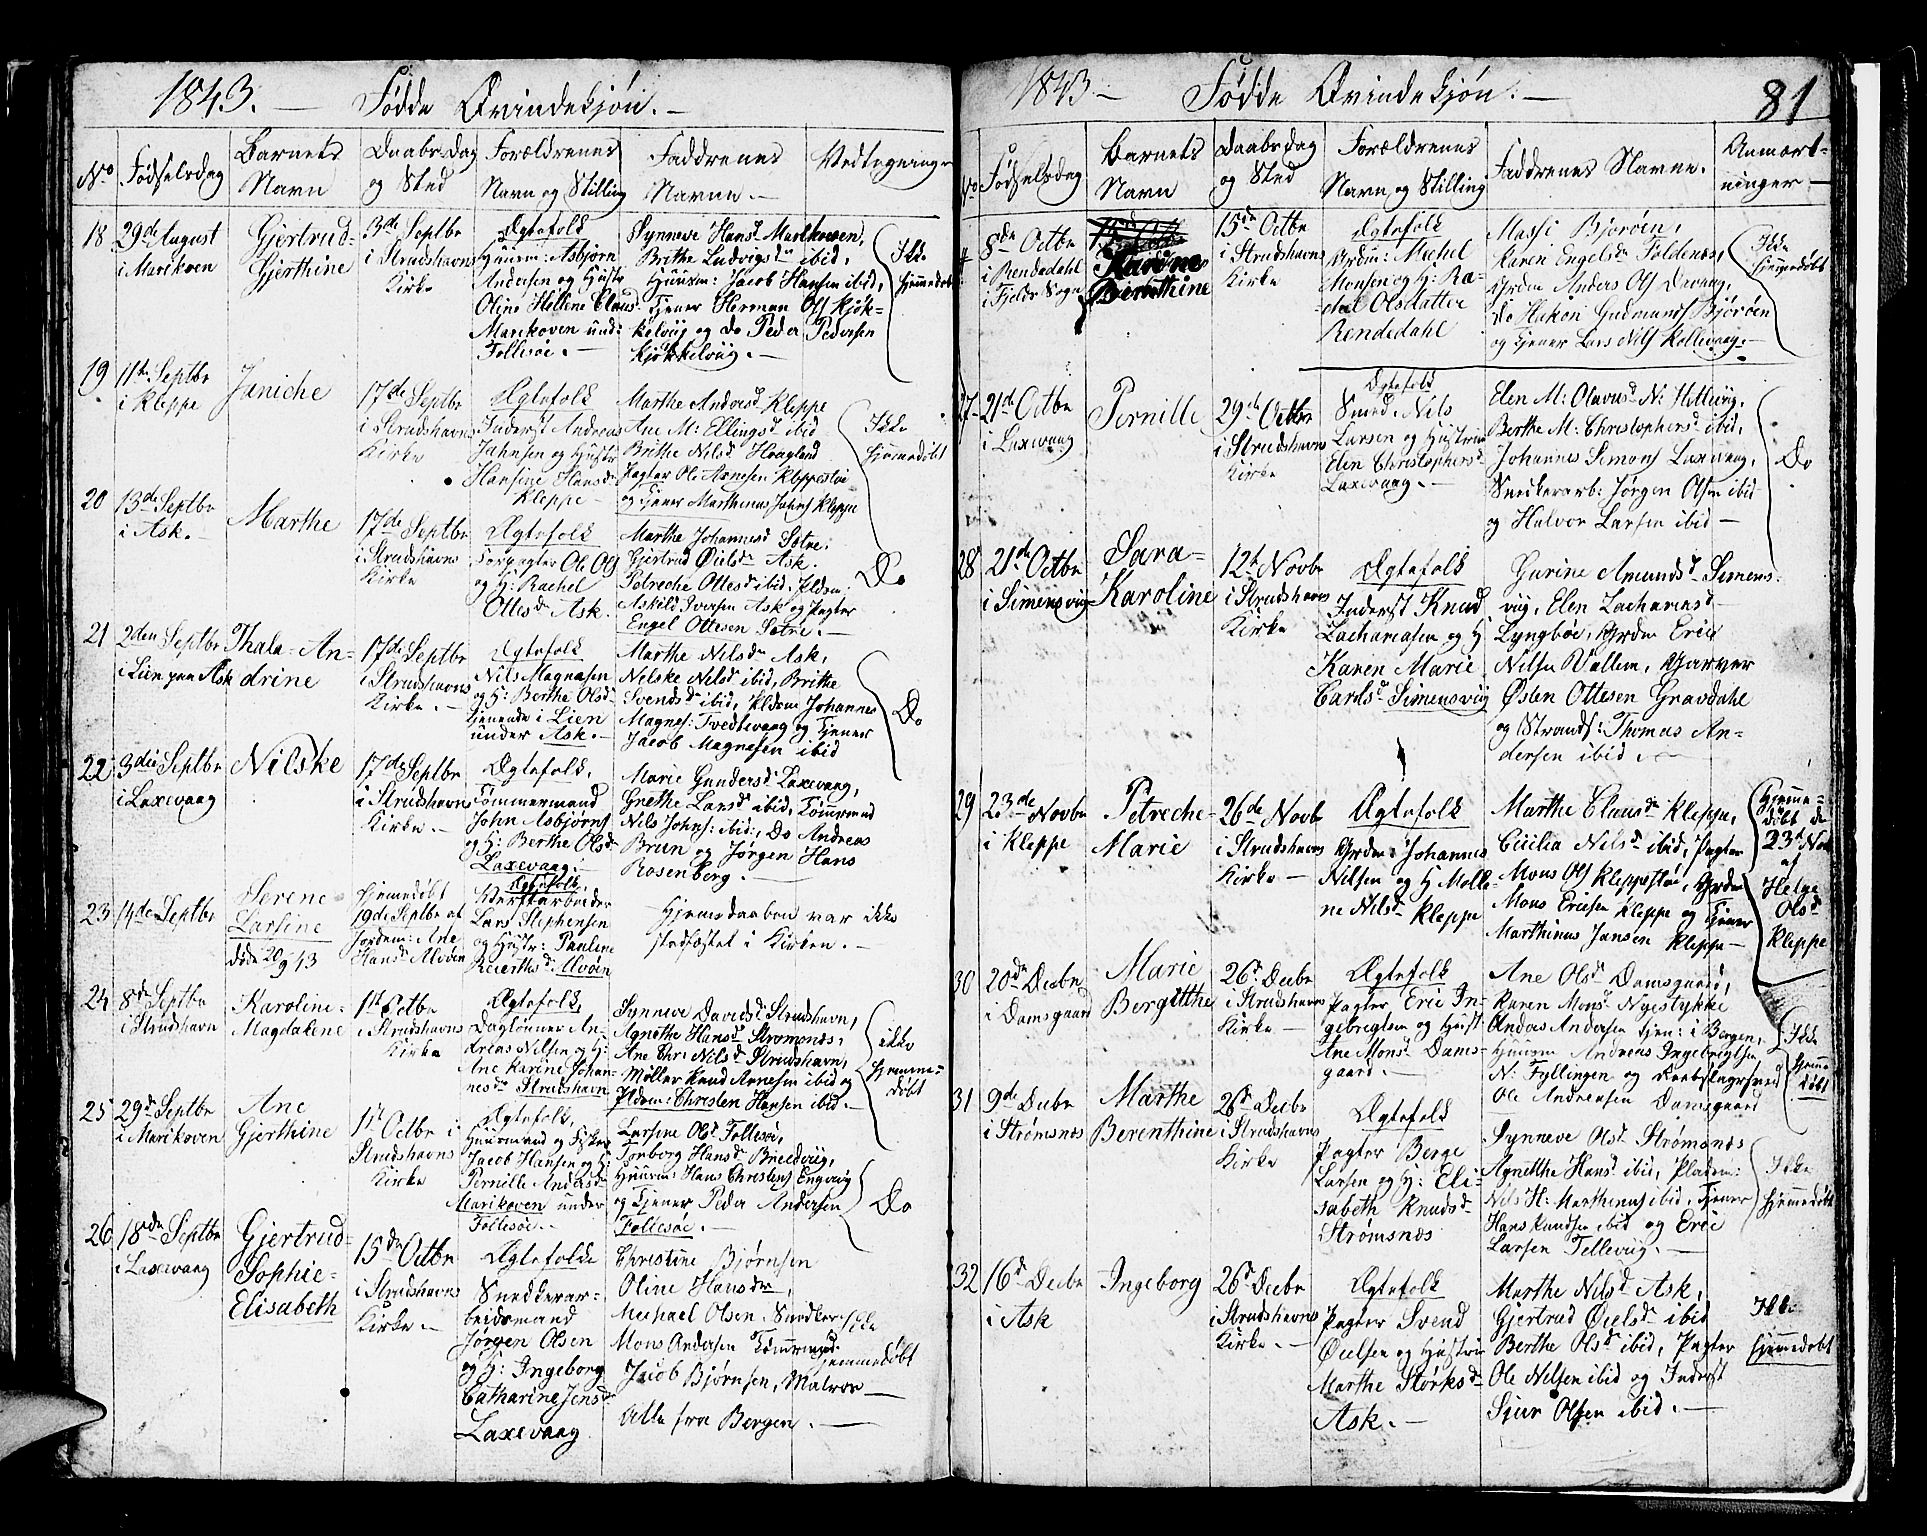 1843. — Fødde Qvindekjøn. —
No
Fødselsdag
Barnets
Navn
Daabsdag
og Sted
Forældrenes
Navn og Stilling
Faddrenes
Navne. —
Vedtegninger
18
29de August
i Marikoven
Gjertrud-
Gjerthine
3de Septbr
i Strudshavns
Kirke
Ægtefolk
Huusm: Asbjørn
Andersen og Hustr
Oline Hellene Claus
Marikoven und:
Follesøe. —
Synneve Hansd Marikoven,
Brithe Ludvigsdr ibid,
Huusm: Jacob Hansen ibid,
Tjener Herman Ols Kjøk-
kelviig og Do Peder Pedersen
Kjøkkelviig. —
Ikke
hjemmedøbt
19
11te Septbr
i Kleppe
Janiche
17de Septbr
i Strudshavns
Kirke
Ægtefolk
Inderst Andreas
Jahnsen og Hustr
Hansine Hansdr
Kleppe —
Marthe Andersd Kleppe
Ane M: Ellingsd ibid
Brithe Nilsd Haagland
Pagter Ole Arnesen Kleppestøe
og Tjener Marthinus Jahns Kleppe
Ikke
hjemmedøbt
20
13de Septbr
i Ask. —
Marthe
17de Septbr
i Strudshavns
Kirke
Ægtefolk
Forpagter Ole Ols
og H: Rachel
Ottesdr Ask.
Marthe Johannesd Sætre,
Gjertrud Øielsdr Ask.
Petreche Ottesd ibid, Pldsm
Askild Iversen Ask og Pagter
Engel Ottesen Sætre. —
Do
21
2den Septbr
i Lien paa Ask
Thala-An-
drine
17de Septbr
i Strudshavns
Kirke. —
Ægtefolk
Nils Magnesen
og H: Berthe Olsd
tjenende i Lien
under Ask. —
Marthe Nilsdr Ask,
Nilske Nilsd ibid, Brithe
Svendsd ibid, Pldsm Johannes
Magnes: Tvedtevaag og Tjener
Jacob Magnesen ibid
Do
22
3die Septbr
i Laxevaag
Nilske
17de Septbr
i Strudshavns
Kirke —
Ægtefolk,
Tømmermand
John Asbjørns
og H: Berthe Olsdr
Laxevaag. —
Marie Gundersd Laxevaag,
Grethe Larsd ibid, Tømmermd
Nils Johns: ibid:, Do Andreas
Brun og Jørgen Hans
Rosenberg. —
23
14de Septbr
Serene
Larsine
døde 20/9 43
Hjemmedøbt
19de Septbr af
Jordem: Ane
Hansd Alvøen
Ægtefolk,
Værftarbeider
Lars Stephensen
og Hustr: Pauline
Reiertsd: Alvøen
Hjemedaaben var ikke
stadfæstet i Kirken. —
24
8de Septbr
i Strudshavn
Karoline-
Magdalene
1st Octbr
i Strudshavns
Kirke
Ægtefolk,
Daglønner An-
dreas Nilsen og H:
Ane Karine Johan-
nesdr Strudshavn
Synneve Davidsd Strudshavn,
Agnethe Hansd Strømsnæs,
Ane Chr: Nilsd Strudshavn,
Møller Knud Arnesen ibid og
Pldsm: Christen Hansen ibid. —
ikke
hjemme-
døbt
25
29d Septbr
i Marikoven
Ane
Gjerthine
1st Octbr i
Strudshavns
Kirke
Ægtefolk,
Huusmand og Fisker
Jacob Hansen og H:
Pernille Andersdr
Marikoven under
Follesøe. —
Larsine Olsd Follesøe,
Torborg Hansd Breedviig,
Huusm: Hans Christens Engeviig
og Tjener Peder Andersen
Follesøe. —
Do
26
18de Septbr
i Laxevaag
Gjertrud-
Sophie-
Elisabeth
15de Octbr
i Strudshavns
Kirke. —
Ægtefolk
Snedkerar-
beidsmand
Jørgen Olsen
og H: Ingeborg
Catharine Jensdr
Laxevaag
Christine Bjørnsen
Oline Hansdr,
Michael Olsen Snedker
Mons Andersen Tømmermd:
Jacob Bjørnsen, Matros —
Alle fra Bergen. —
Ikke
hjemmedøbt
1843. — Fødde Qvindekjøn. —
81
No
Fødselsdag
Barnets
Navn
Daabsdag
og Sted
Forældrenes
Navn og Stilling
Faddrenes Navne. —
Anmærk-
ninger —
8de Octbr
i Rendedahl
i Fjelds Sogn
Karine
Berenthine
15de Octbr
i Strudshavns
Kirke
Ægtefolk
Grdm: Michel
Monsen og H: Ra-
chel Olsdatter
Rendedahl
Massi Bjorøen,
Karen Engelsd Foldenæs,
Grdm Anders Ols Davang,
do Hakon Gudmunds Bjorøen
og Tjener Lars Nils Kallevaag. —
Ikke
hjemmedøbt
27
21d Octbr
i Laxevaag
Pernille
29de Octbr
i Strudshavns
Kirke
Ægtefolk
Smed Nils
Larsen og Hustrue
Elen Christophersd
Laxevaag. —
Elen M: Olavusd N: Helleviig,
Berthe M: Christophersd ibid,
Johannes Simons Laxevaag,
Snedkerarb: Jørgen Olsen ibid
og Halvor Larsen ibid —
Do
28
21de Octbr
i Simensviig
Sara-
Karoline
12te Novbr
i Strudshavns
Kirke
Ægtefolk
Inderst Knud
Zachariasen og H
Karen Marie
Cardsd Simensviig
Gurine Amundsd Simens-
viig, Elen Zachariasd
Lyngbøe, Grdm Eric
Nilsen Vallem, Garver
Østen Ottesen Gravdahl
og Strands: Thomas An-
dersen ibid. —
29
23de Novbr
i Kleppe
Petreche-
Marie
26de Novb
i Strudshavns
Kirke —
Ægtefolk
Grdm: Johannes
Nilsen og H Malle-
ne Nilsdr Kleppe
Marthe Clausdr Kleppe,
Cicilia Nilsd ibid, Pagter
Mons Ols Kleppestøe, Grdm
Mons Ericsen Kleppe og Tjener
Marthinus Jansen Kleppe —
Hjemme-
døbt d.
23d Nov
af
Helge
Olsd
Kleppe
30
20de Decbr
i Damsgaard
Marie
Bergitthe
26d Decbr
i Strudshavns
Kirke —
Ægtefolk
Pagter Eric In-
gebregtsen og Hust
Ane Monsd Dams-
gaard. —
Ane Olsd Damsgaard,
Karen Monsd Nygestykke
Anders Andersen tjen: i Bergen,
Huusm Andreas Ingebrigtsen
N: Fyllingen og
Ole Andreasen Damsgaard
Ikke
hjemme
døbt
31
9de Decbr
i Strømsnæs
Marthe
Berenthine
26d Decbr
i Strudshavns
Kirke
Ægtefolk
Pagter Berge
Larsen og H: Eli-
sabeth Knudsdr
Strømsnæs
Synneve Olsd Strømsnæs
Agnethe Hansd ibid, Pladsm:
Nils H: Marthinus ibid, Tjener
Hans Knudsen ibid og Eric
Larsen Telleviig. —
Ikke
hjemmedøbt
32
16d Decbr
i Ask
Ingeborg
26d Decbr
i Strudshavns
Kirke. —
Ægtefolk
Pagter Svend
Øielsen og Hustrue
Marthe Størksdr
Ask. —
Marthe Nilsd Ask,
Gjertrud Øielsdr ibid
Berthe Olsd ibid, Pagter
Ole Nilsen ibid og Inderst
Sjur Olsen ibid. —
Ikke
hjemmedøbt